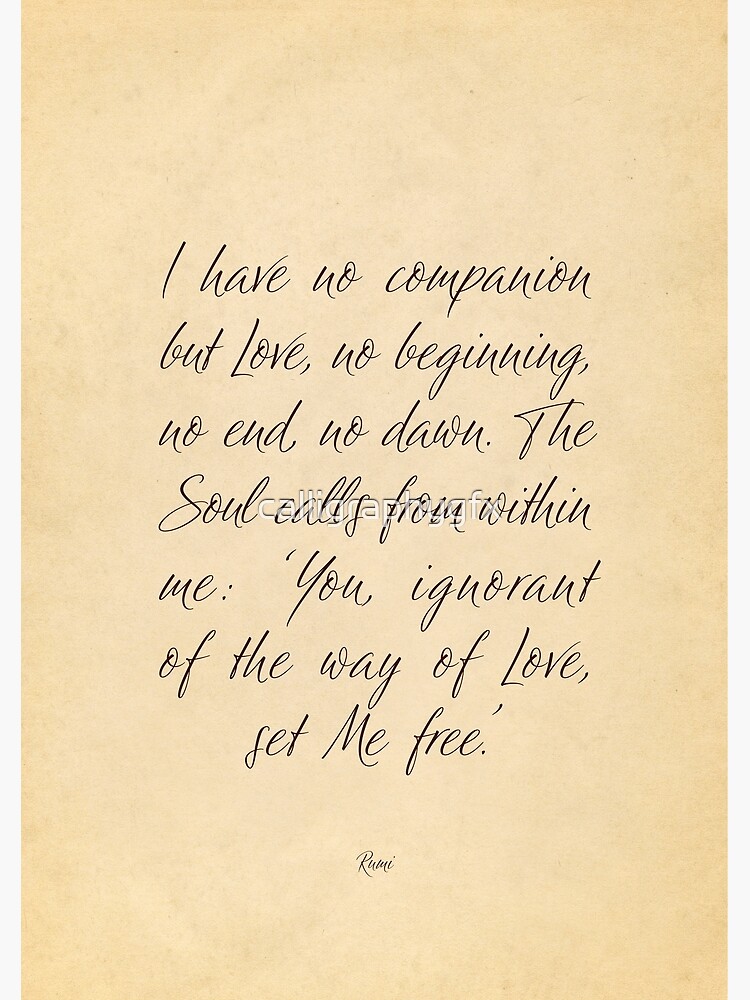 I have no companion
but Love, no beginning,
no end, no dawn. The
Soul calls from within
calligraphygfx
me: 'You, ignorant
of the way of Love,
set Me free.'
Rumi